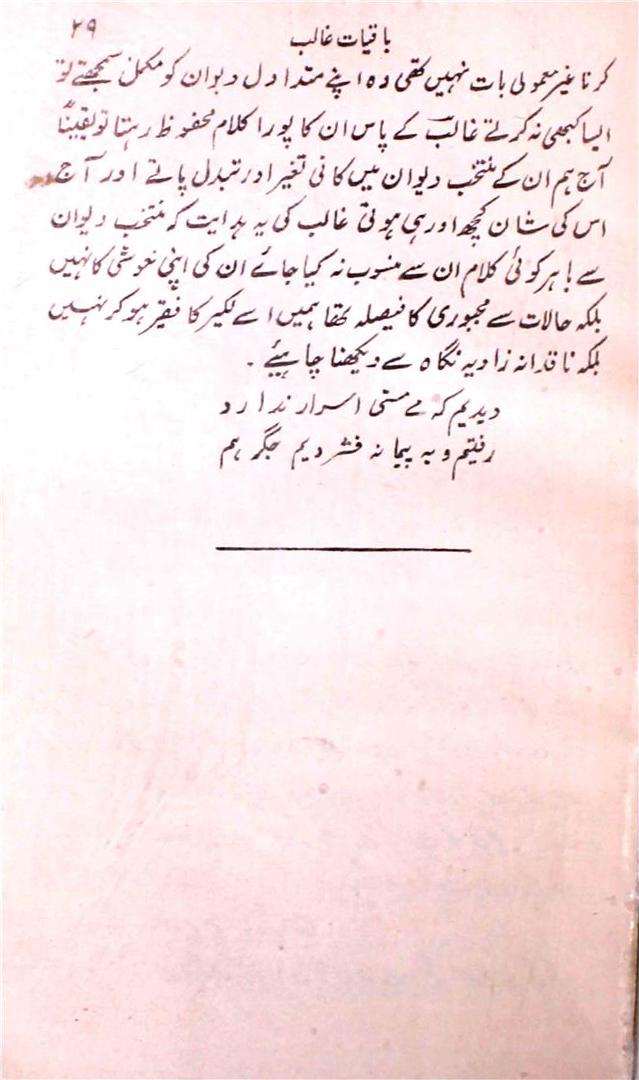 ۲۹
باقیات غالب
کرنا غیر معمولی بات نہیں تھی وہ اپنے متداول دیوان کو مکمل سمجھتے تو
ایسا کبھی نہ کرتے غالبؔ کے پاس ان کا پورا کلام محفوظ رہتا تو یقیناً
آج ہم ان کے منتخب دیوان میں کافی تغیر اور تبدل پاتے اور آج
اس کی شان کچھ اور ہی ہوتی غالب کی یہ ہدایت کہ منتخب دیوان
سے باہر کوئی کلام ان سے منسوب نہ کیا جائے ان کی اپنی خوشی کا نہیں
بلکہ حالات سے مجبوری کا فیصلہ تھا ہمیں اسے لکیر کا فقیر ہو کر نہیں
بلکہ ناقدانہ زاویہ نگاہ سے دیکھنا چاہیئے ۔
دیدیم کہ مے مستی اسرار ندارد
رفتیم و بہ پیمانہ فشردیم جگر ہم